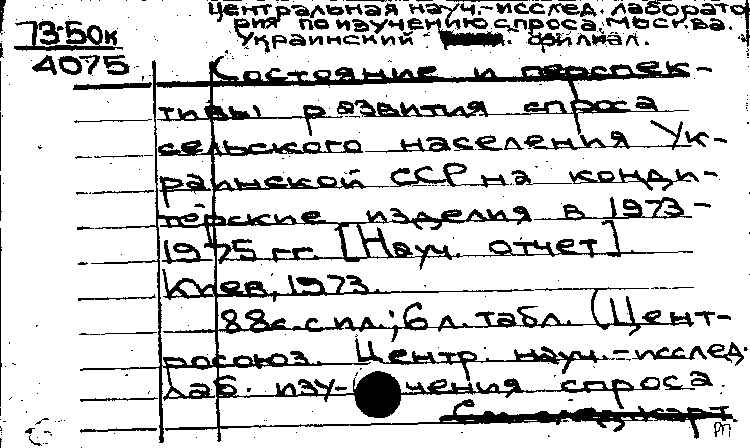 Центральная науч.-исслед. лаборато
рия по изучению спроса. Москва.
Украинский филиал.
73-50к
4075
Состояние и перспек-
тивы развития спроса
сельского населения Ук-
раинской ССР на конди-
терские изделия в 1973-
1975 гг. [Науч. отчет].
Киев, 1973.
88с. с ил.; 6 л. табл. (Цент-
росоюз. Центр. науч.-исслед.
лаб. изу- чения спроса
См след карт